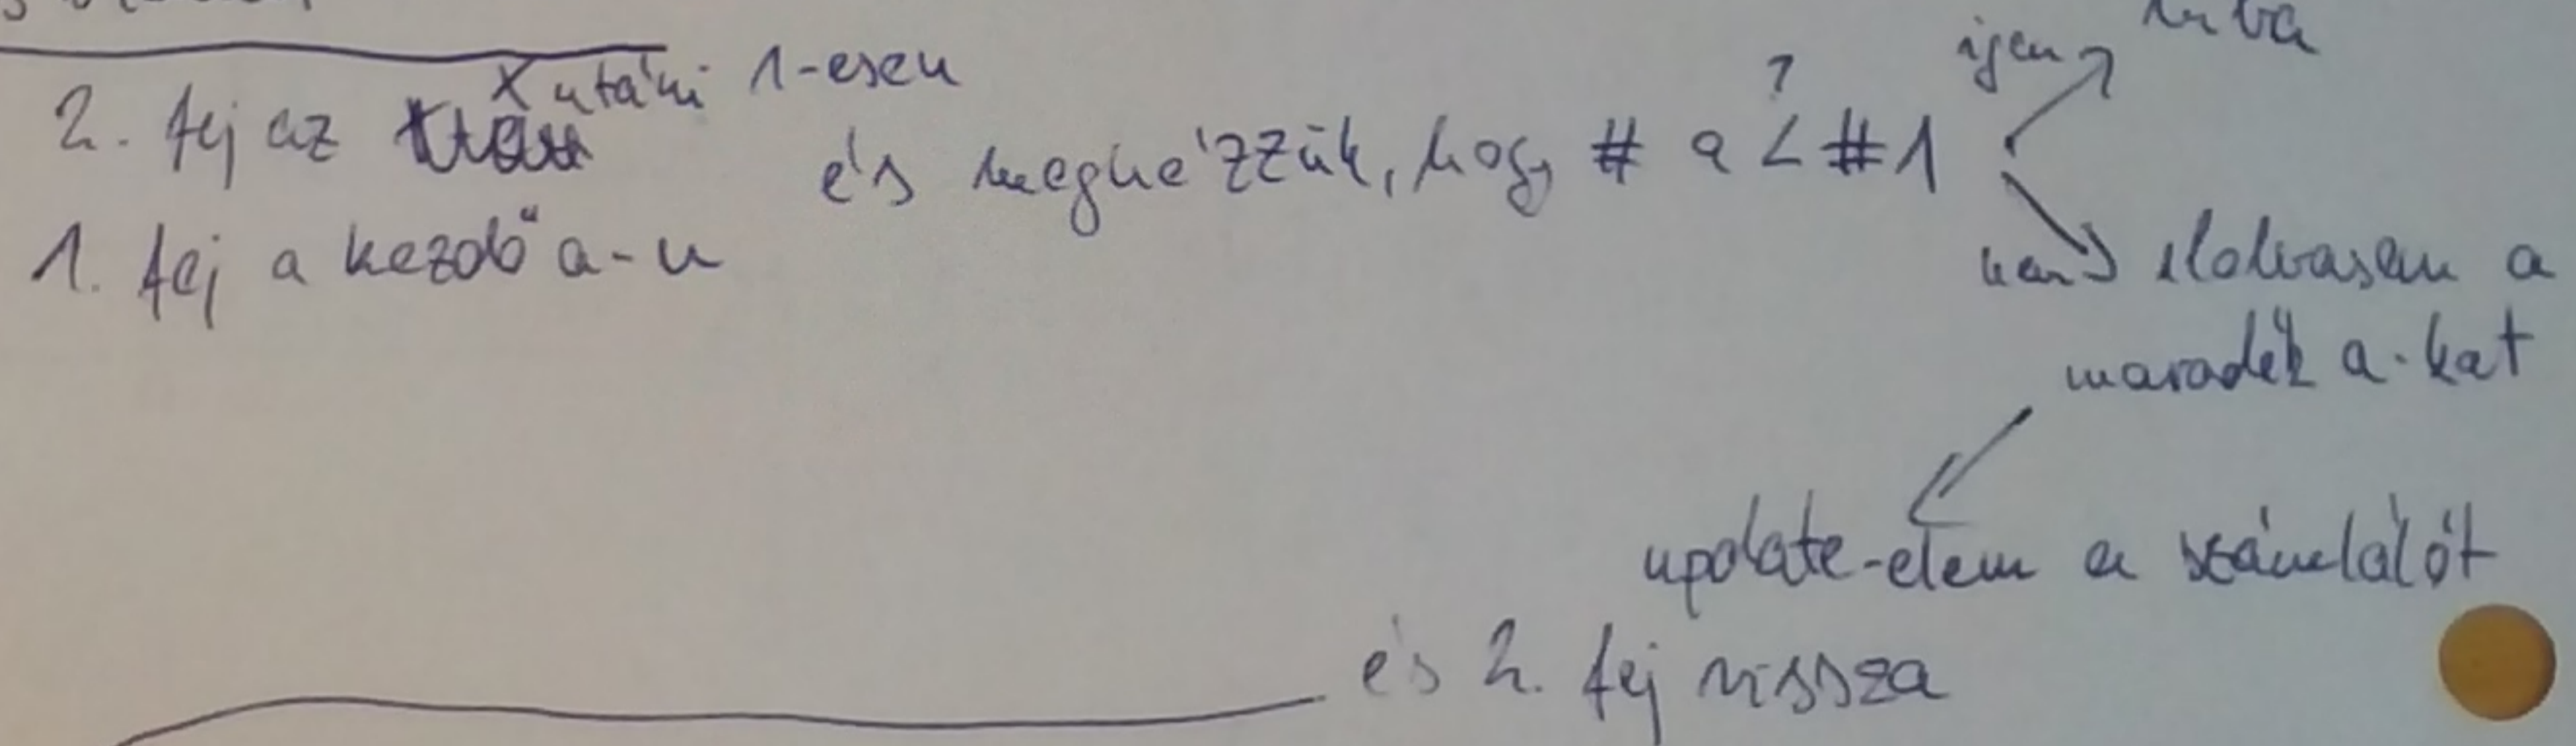 igen
X utáni 1-esen
2. fej az
és megnézzük, hogy # a < #1
?
1. fej a kezdő a-n
nem elolvasom a
maradék a-kat
update-elem a számlálót
és 2. fej vissza